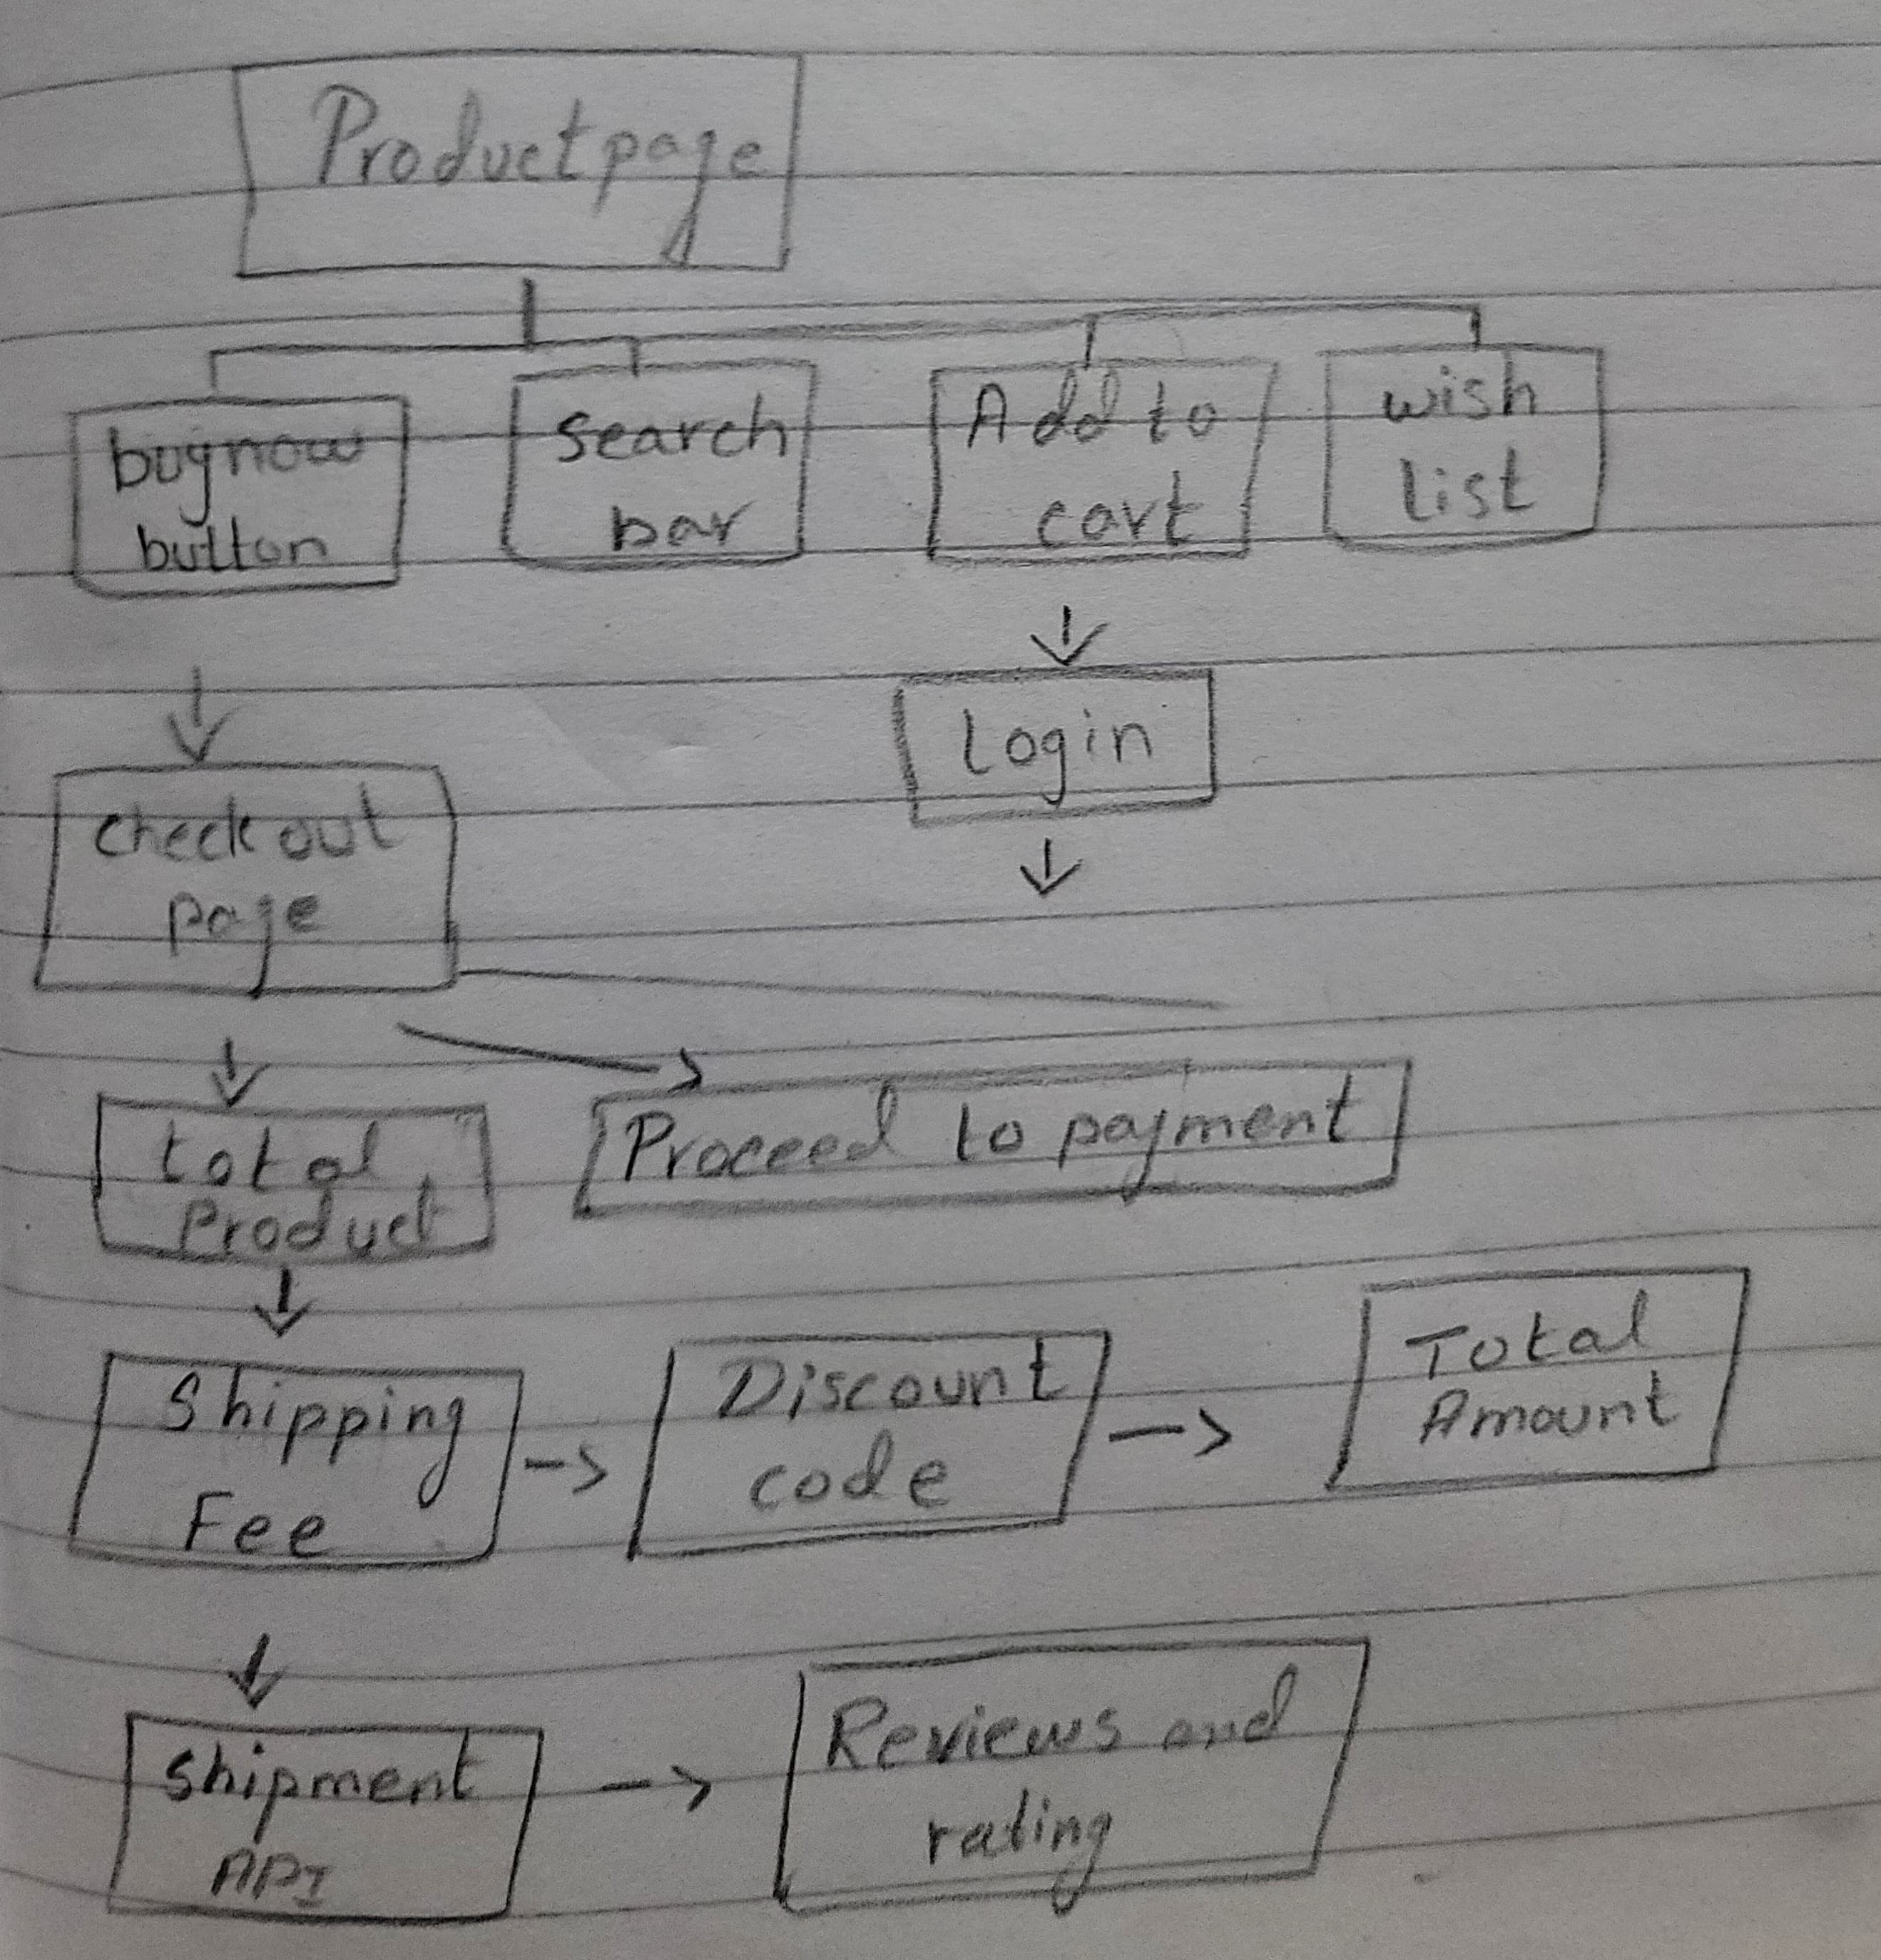 Product page
buy now
button
search
bar
Add to
cart
wish
list
Login
check out
page
total
Product
Proceed to payment
Shipping
Fee
Discount
code
Total
Amount
Shipment
API
Reviews and
rating